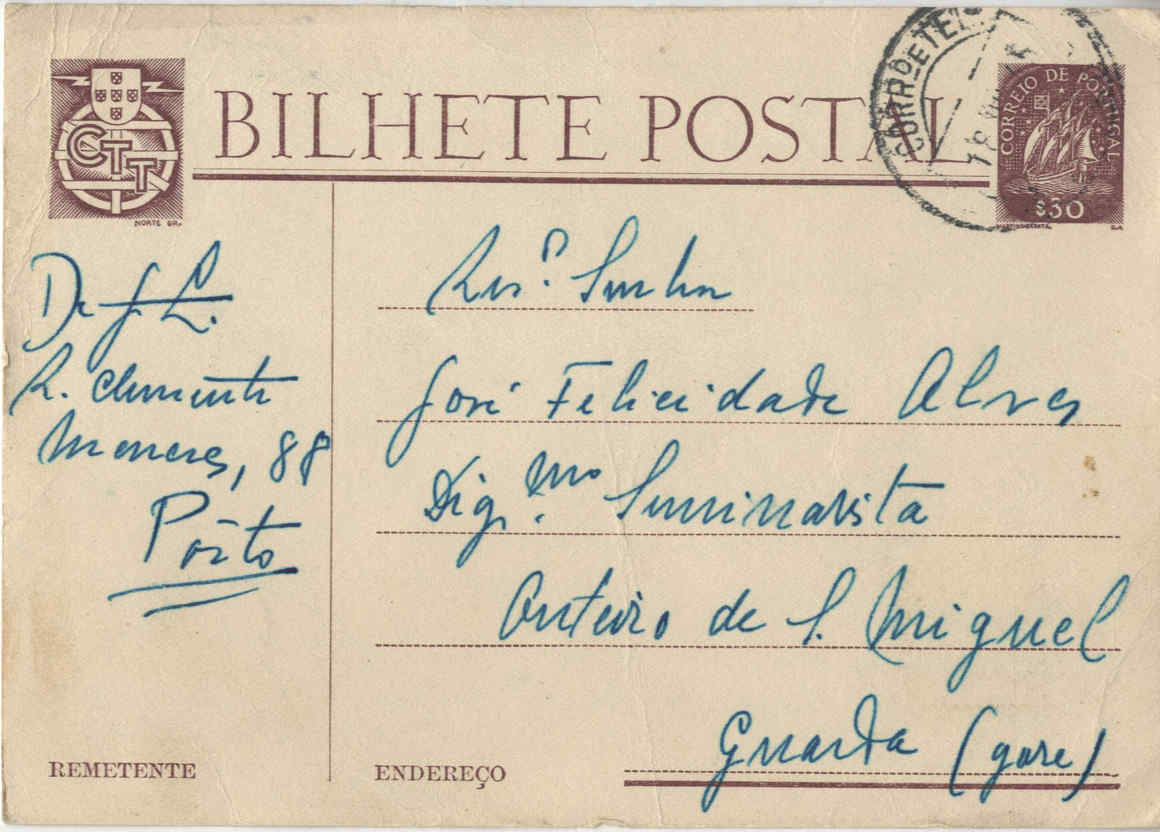 BILHETE POSTAL
CTT
NORTE GR.
CORREIO DE PORTUGAL
$30
CORR
18
De J. L.
R. Clemente
Meneres, 88
Pôrto
REMETENTE
José Felicidade Alves
Dig.mo Seminarista
Outeiro de S. Miguel
Guarda (gare)
ENDEREÇO